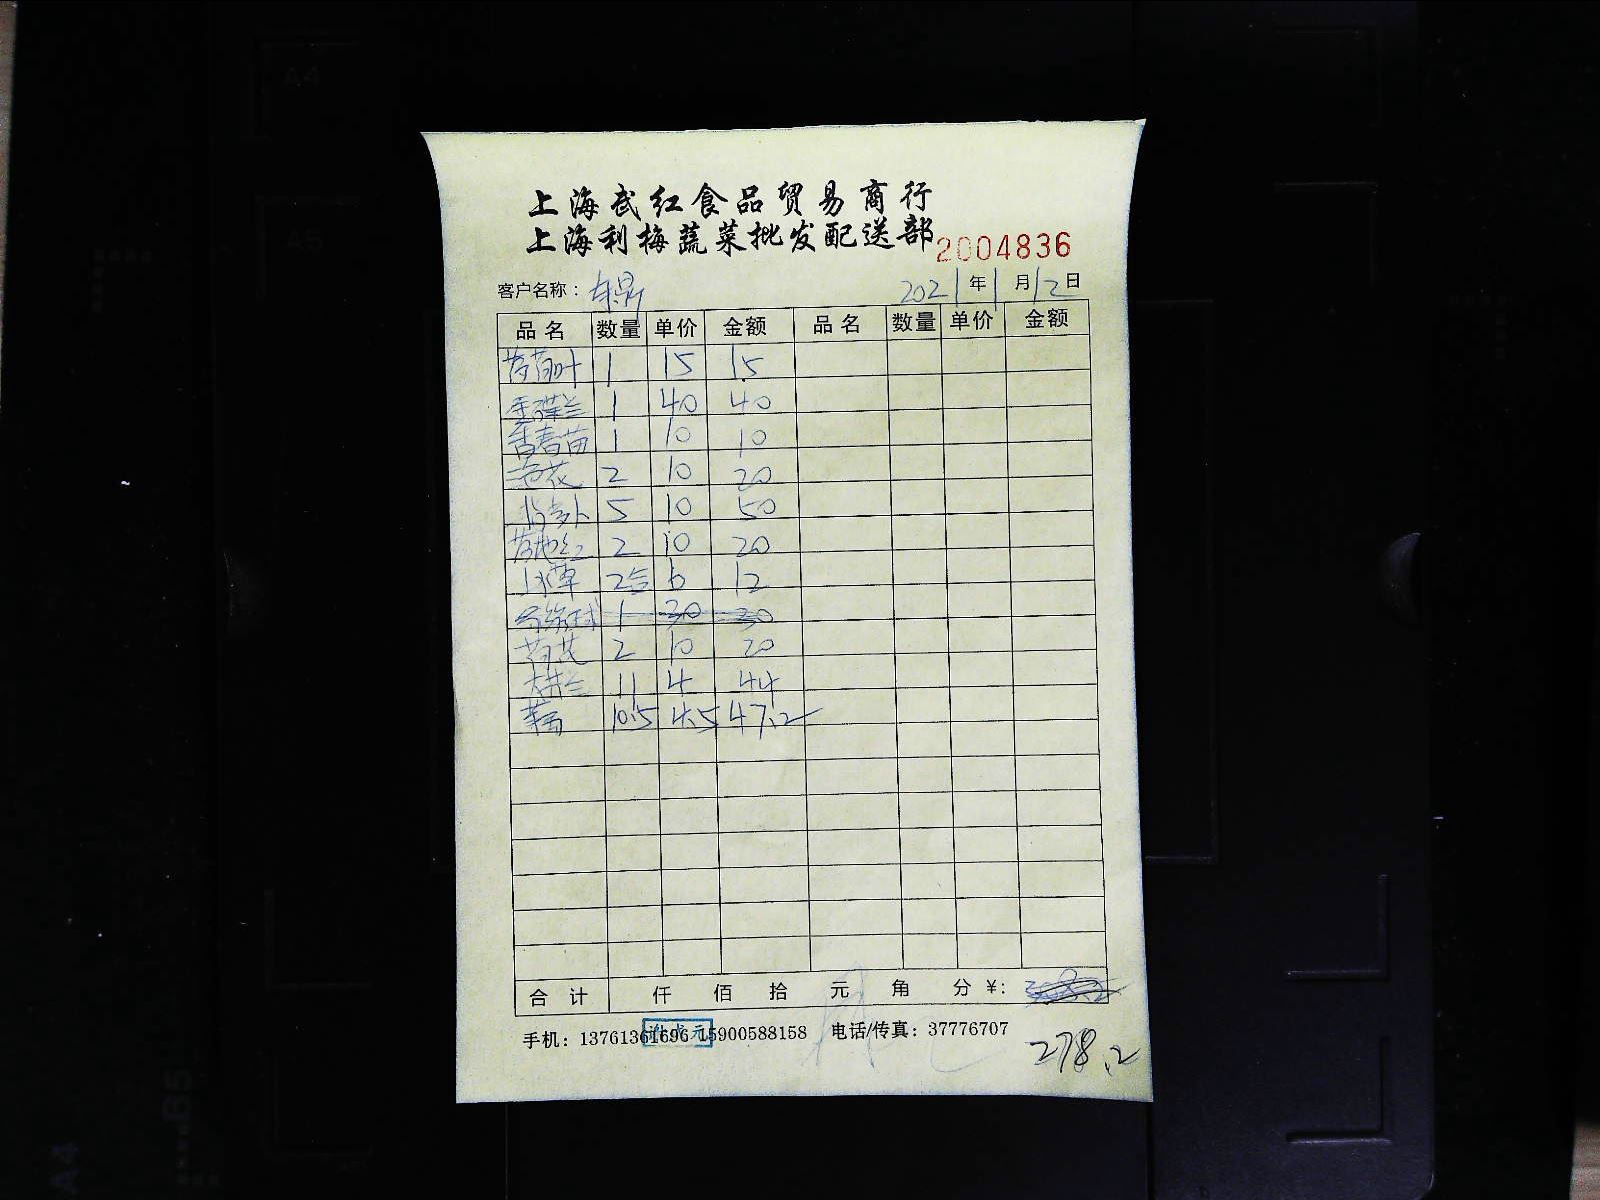 上海武红食品贸易商行
上海利梅蔬菜批发配送部
2004836
客户名称： 2021年1月12日
品名 数量 单价 金额 品名 数量 单价 金额
1 15 15
蝶兰 1 40 40
香春苗 1 10 10
花 2 10 20
5 10 50
2 10 20
草 2 6 12
球 1 30 30
花 2 10 20
兰 11 4 44
10.5 4.5 47.2
合计 仟 佰 拾 元 角 分 ¥:
手机：13761361696 15900588158 电话/传真：37776707
278.2